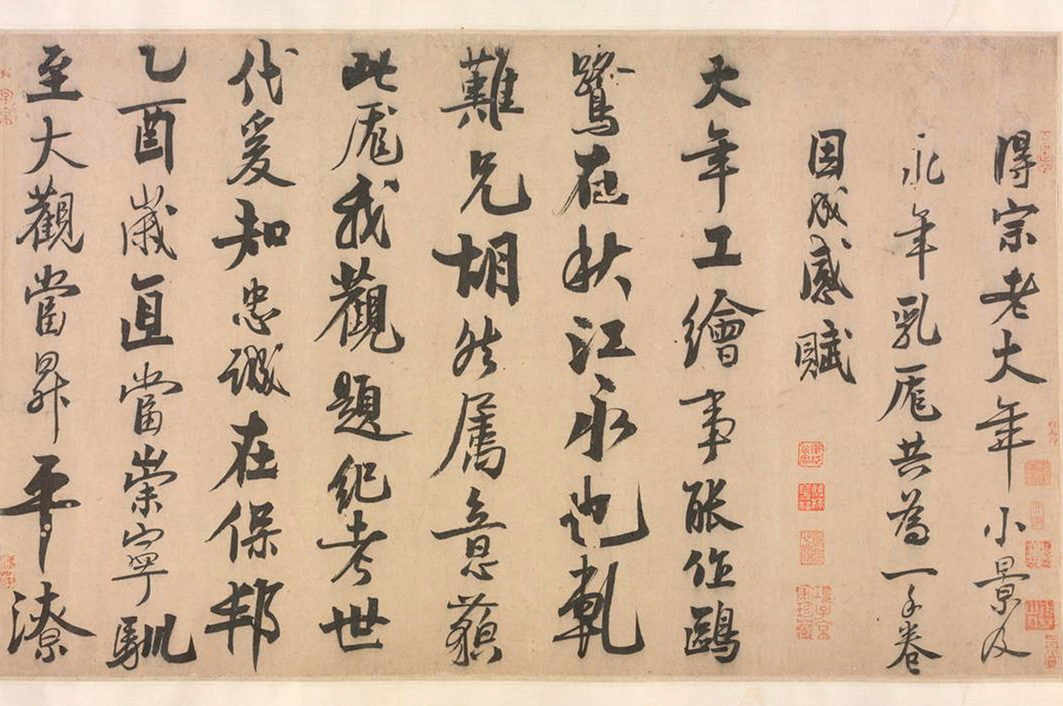 得宗老大年小景及
永年乳厖共為一手卷
因成感賦
大年工繪事鷗
鷺在秋江永也孰
難兄胡然屬意藐
此厖我觀題紀考世
代爰知忠誠在保邦
乙酉歲直當崇寧馴
至大觀當昇平潦